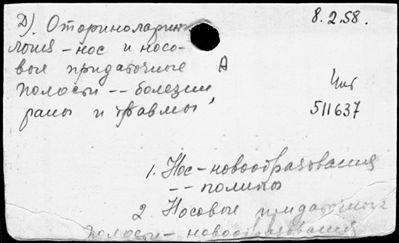 Д). Оториноларинго 8.2.58.
логия - нос и носо-
вые придаточные А
полости -- болезни Чит
раны и травмы 511637
1. Нос - новообразования
-- полипы
2 Носовые придаточные
полости - новообразования